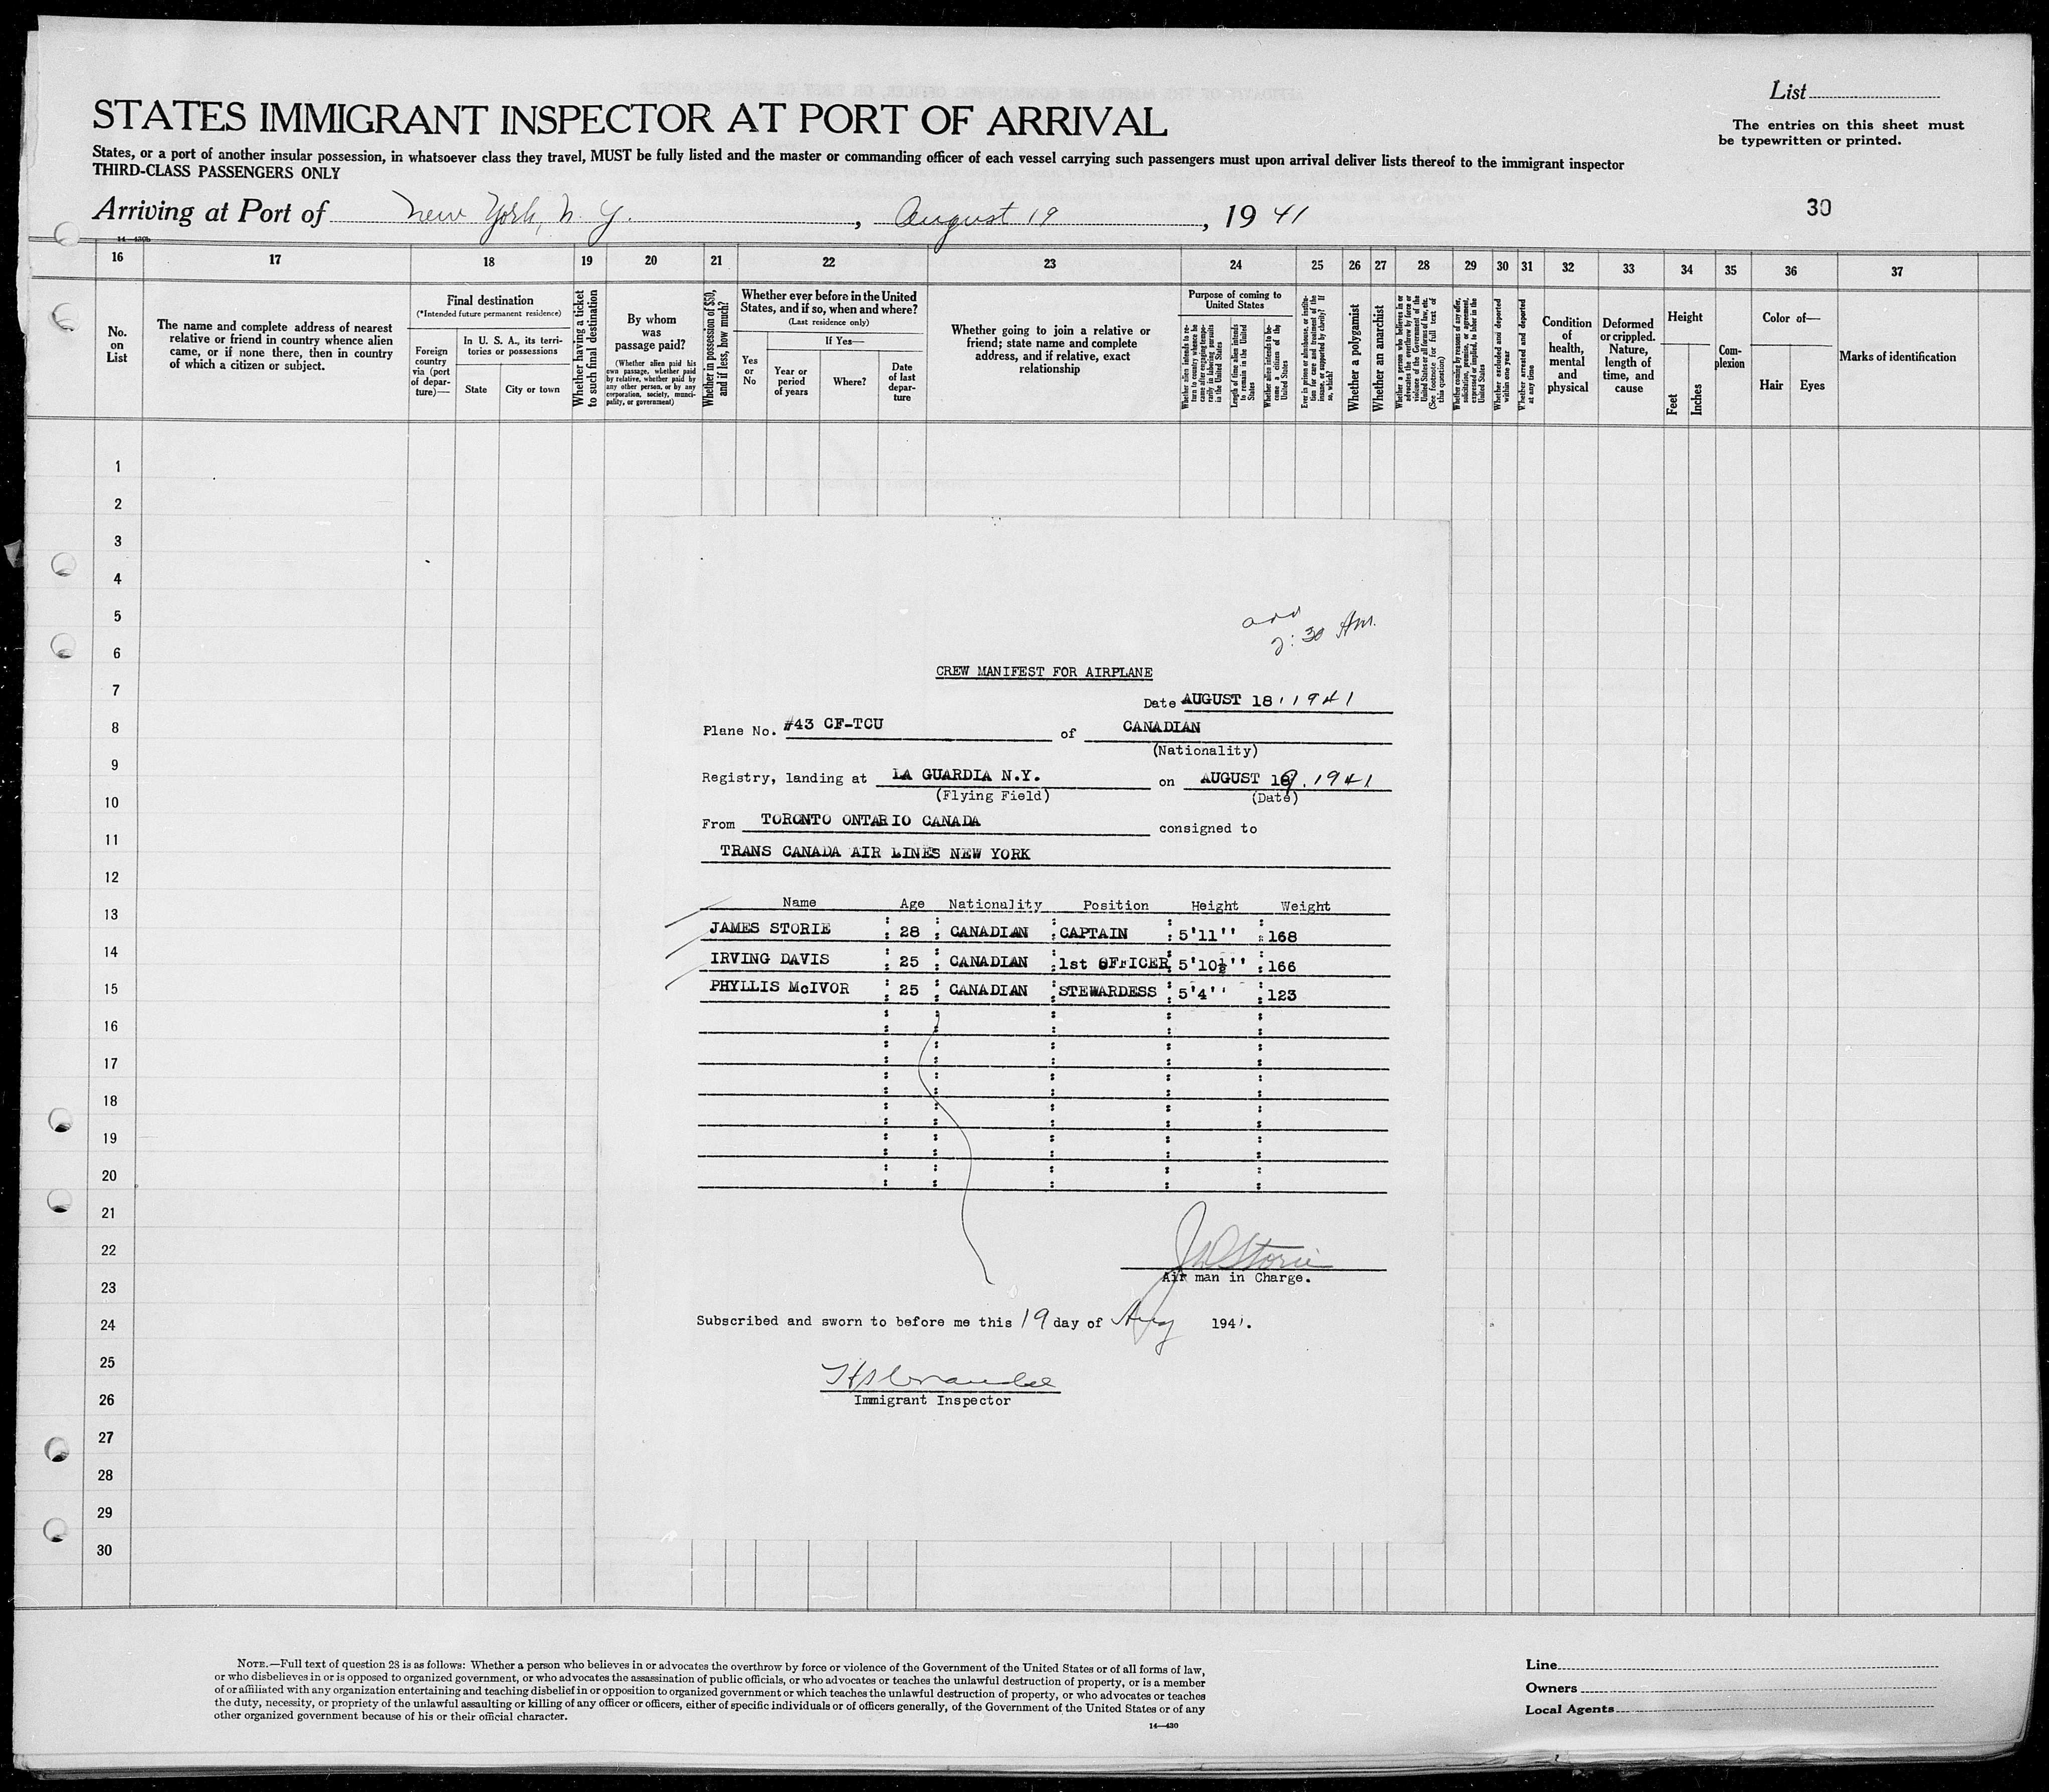 List
STATES IMMIGRANT INSPECTOR AT PORT OF ARRIVAL
The entries on this sheet must
be typewritten or printed.
States, or a port of another insular possession, in whatsoever class they travel, MUST be fully listed and the master or commanding officer of each vessel carrying such passengers must upon arrival deliver lists thereof to the immigrant inspector
THIRD-CLASS PASSENGERS ONLY
Arriving at Port of New York, N. Y., August 19, 1941
30
14—430b
16 17 18 19 20 21 22 23 24 25 26 27 28 29 30 31 32 33 34 35 36 37
No. on List
The name and complete address of nearest relative or friend in country whence alien came, or if none there, then in country of which a citizen or subject.
Final destination
(*Intended future permanent residence)
Foreign country via (port of departure)—
In U. S. A., its territories or possessions
State
City or town
Whether having a ticket to such final destination
By whom was passage paid?
(Whether alien paid his own passage, whether paid by relative, whether paid by any other person, or by any corporation, society, municipality, or government)
Whether in possession of $50, and if less, how much?
Whether ever before in the United States, and if so, when and where?
(Last residence only)
Yes or No
If Yes—
Year or period of years
Where?
Date of last departure
Whether going to join a relative or friend; state name and complete address, and if relative, exact relationship
Purpose of coming to United States
Whether alien intends to return to country whence he came after engaging temporarily in laboring pursuits in the United States
Length of time alien intends to remain in the United States
Whether alien intends to become a citizen of the United States
Ever in prison or almshouse, or institution for care and treatment of the insane, or supported by charity? If so, which?
Whether a polygamist
Whether an anarchist
Whether a person who believes in or advocates the overthrow by force or violence of the Government of the United States or all forms of law, etc. (See footnote for full text of this question)
Whether coming by reasons of any offer, solicitation, promise, or agreement, expressed or implied, to labor in the United States
Whether excluded and deported within one year
Whether arrested and deported at any time
Condition of health, mental and physical
Deformed or crippled. Nature, length of time, and cause
Height
Feet
Inches
Complexion
Color of—
Hair
Eyes
Marks of identification
1
2
3
4
5
6
7
8
9
10
11
12
13
14
15
16
17
18
19
20
21
22
23
24
25
26
27
28
29
30
arr
2:30 Am.
CREW MANIFEST FOR AIRPLANE
Date AUGUST 18, 1941
Plane No. #43 CF-TCU of CANADIAN
(Nationality)
Registry, landing at LA GUARDIA N.Y. on AUGUST 19, 1941
(Flying Field) (Date)
From TORONTO ONTARIO CANADA consigned to
TRANS CANADA AIR LINES NEW YORK
Name Age Nationality Position Height Weight
JAMES STORIE : 28 : CANADIAN : CAPTAIN : 5'11'' : 168
IRVING DAVIS : 25 : CANADIAN : 1st OFFICER : 5'10½'' : 166
PHYLLIS McIVOR : 25 : CANADIAN : STEWARDESS : 5'4'' : 123
Storie
Air man in Charge.
Subscribed and sworn to before me this 19 day of Aug 1941.
Immigrant Inspector
NOTE.—Full text of question 28 is as follows: Whether a person who believes in or advocates the overthrow by force or violence of the Government of the United States or of all forms of law,
or who disbelieves in or is opposed to organized government, or who advocates the assassination of public officials, or who advocates or teaches the unlawful destruction of property, or is a member
of or affiliated with any organization entertaining and teaching disbelief in or opposition to organized government or which teaches the unlawful destruction of property, or who advocates or teaches
the duty, necessity, or propriety of the unlawful assaulting or killing of any officer or officers, either of specific individuals or of officers generally, of the Government of the United States or of any
other organized government because of his or their official character.
14—430
Line
Owners
Local Agents